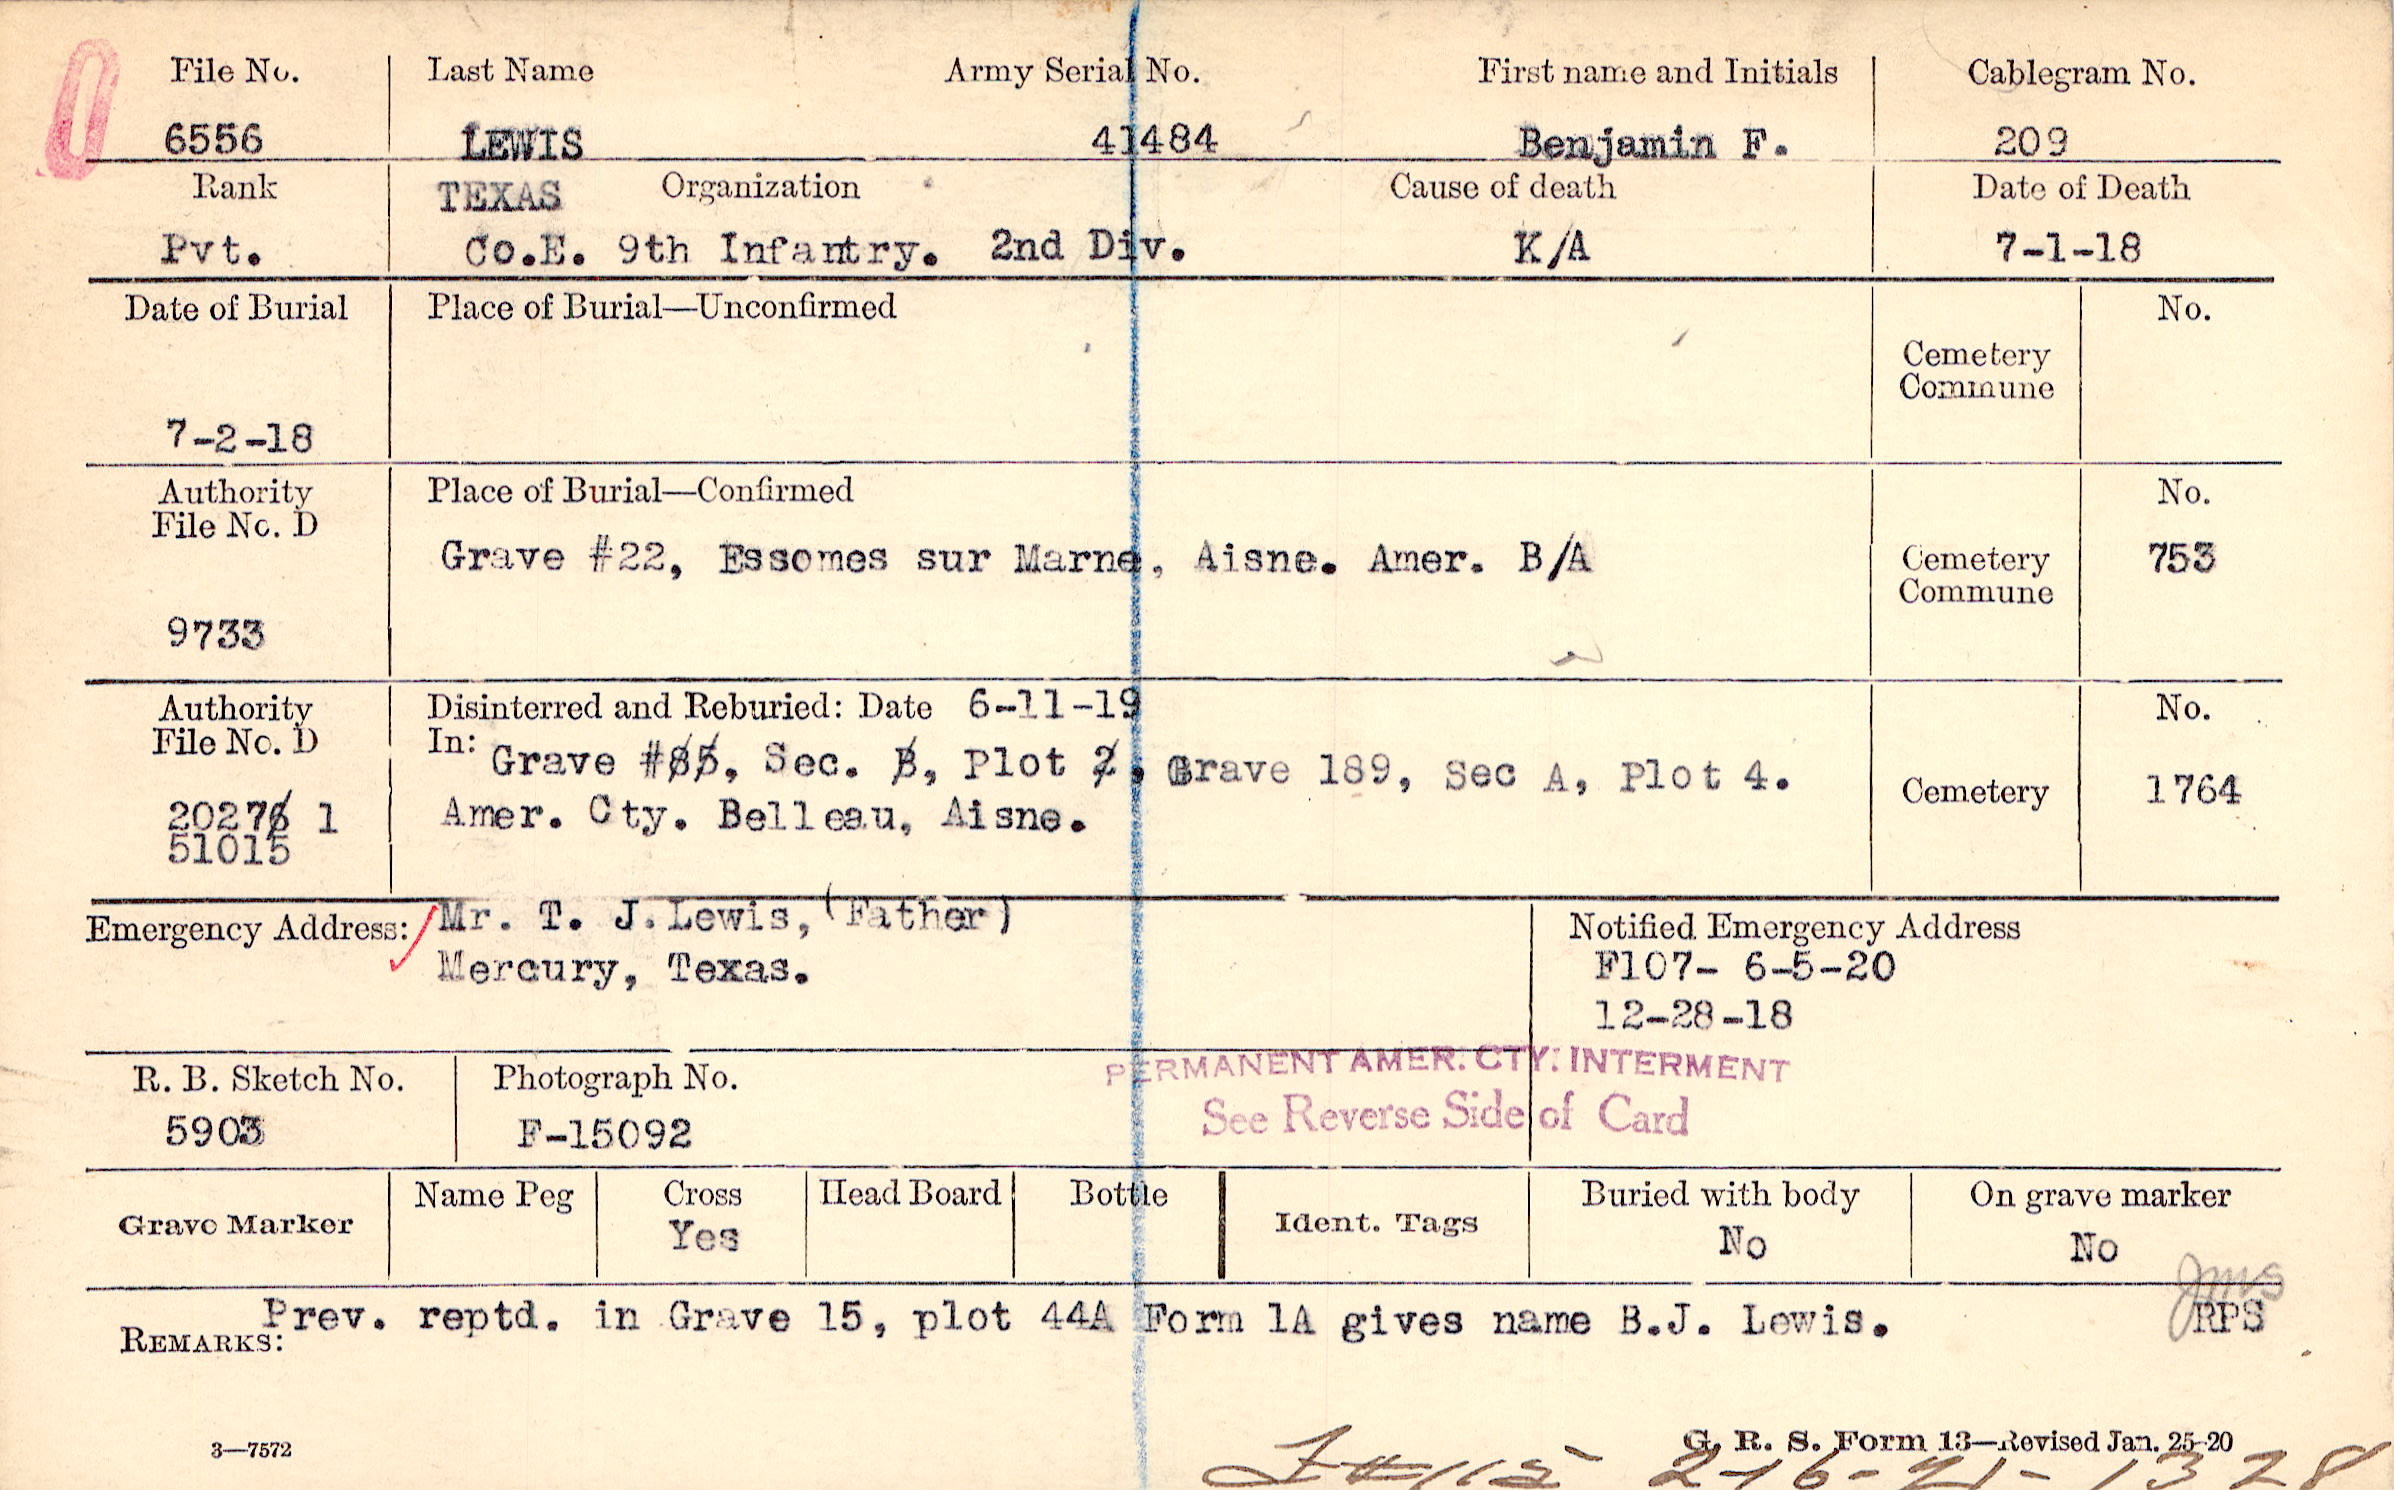 File No. Last Name Army Serial No. First name and Initials Cablegram No.
6556 LEWIS 41484 Benjamin F. 209
Rank TEXAS Organization Cause of death Date of Death
Pvt. Co.E. 9th Infantry. 2nd Div. K/A 7-1-18
Date of Burial Place of Burial—Unconfirmed No.
Cemetery
Commune
7-2-18
Authority Place of Burial—Confirmed No.
File No. D
Grave #22, Essomes sur Marne, Aisne. Amer. B/A Cemetery 753
Commune
9733
Authority Disinterred and Reburied: Date 6-11-19 No.
File No. D In: Grave #85, Sec. B, Plot 2. Grave 189, Sec A, Plot 4.
Cemetery 1764
20276 1 Amer. Cty. Belleau, Aisne.
51015
Emergency Address: Mr. T. J. Lewis, (Father) Notified Emergency Address
Mercury, Texas. F107- 6-5-20
12-28-18
PERMANENT AMER. CTY. INTERMENT
R. B. Sketch No. Photograph No.
See Reverse Side of Card
5903 F-15092
Name Peg Cross Head Board Bottle Buried with body On grave marker
Grave Marker Yes Ident. Tags No No
JMS
Prev. reptd. in Grave 15, plot 44A Form 1A gives name B.J. Lewis. RPS
REMARKS:
3—7572 G. R. S. Form 13—Revised Jan. 25-20
2-16-21-1328